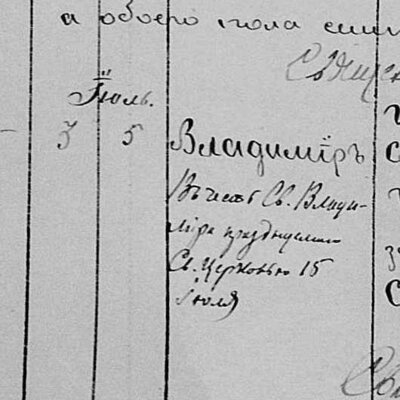 а обоего пола
Іюль.
3 5 Владиміръ
Въ честь Св. Влади-
міра празднуемаго
Св. Церковью 15
Іюля